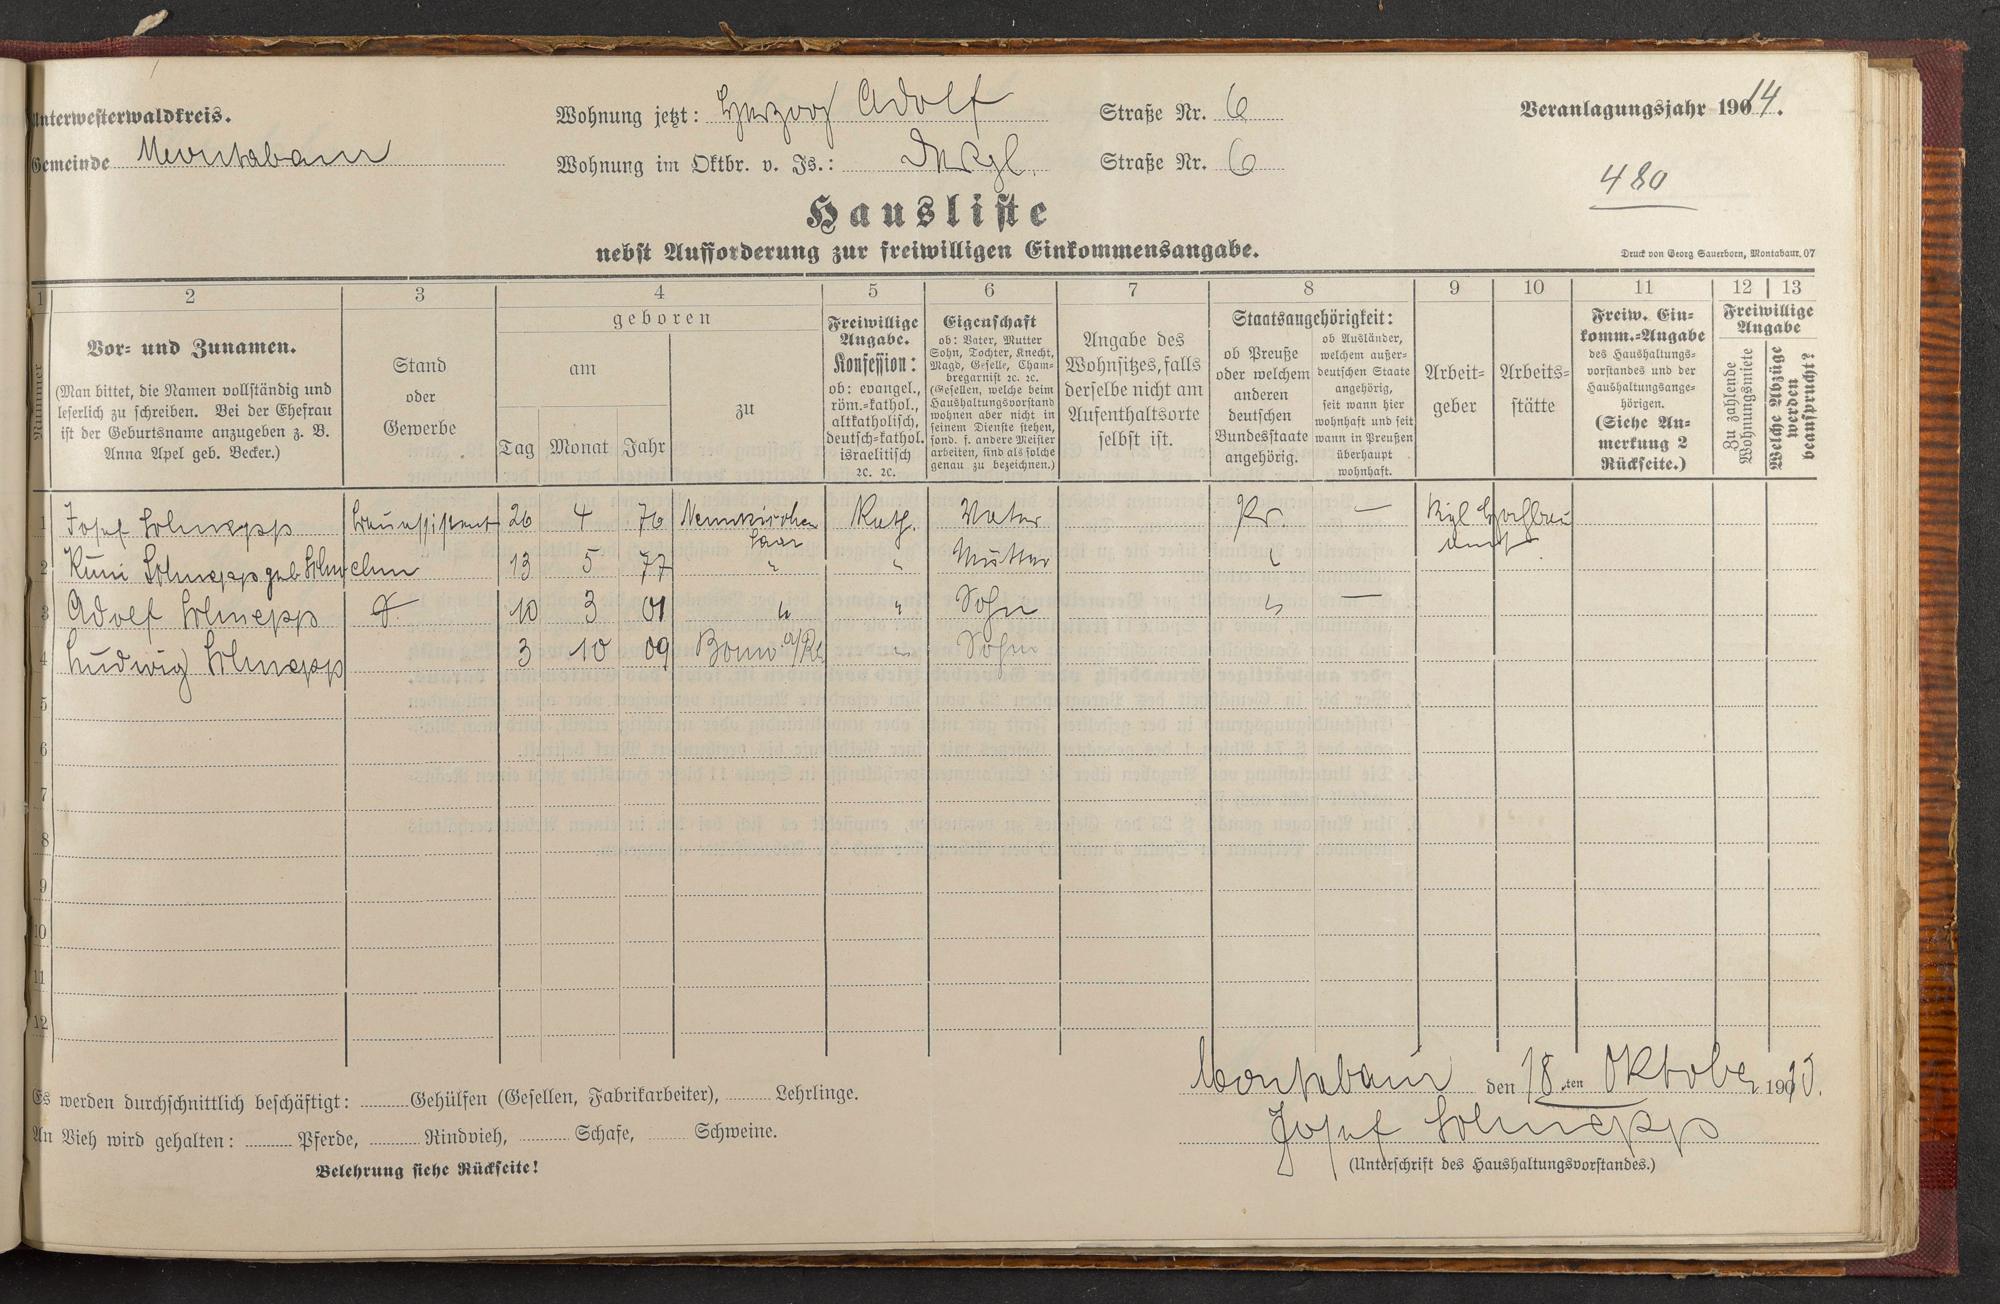 Unterwesterwaldkreis.
Gemeinde Montabaur
Wohnung jetzt: Herzog Adolf Straße Nr. 6
Wohnung im Oktbr. v. Js.: Straße Nr. 6
Veranlagungsjahr 190 14.
480
Hausliste
nebst Aufforderung zur freiwilligen Einkommensangabe.
Druck von Georg Sauerborn, Montabaur. 07
1 2 3 4 5 6 7 8 9 10 11 12 13
Nummer
Vor- und Zunamen.
(Man bittet, die Namen vollständig und
leserlich zu schreiben. Bei der Ehefrau
ist der Geburtsname anzugeben z. B.
Anna Apel geb. Becker.)
Stand
oder
Gewerbe
geboren
am
Tag Monat Jahr
zu
Freiwillige
Angabe.
Konfession:
ob: evangel.,
röm.-kathol.,
altkatholisch,
deutsch-kathol.
israelitisch
2c. 2c.
Eigenschaft
ob: Vater, Mutter
Sohn, Tochter, Knecht,
Magd, Geselle, Cham-
bregarnist 2c. 2c.
(Gesellen, welche beim
Haushaltungsvorstand
wohnen aber nicht in
seinem Dienste stehen,
sond. f. andere Meister
arbeiten, sind als solche
genau zu bezeichnen.)
Angabe des
Wohnsitzes, falls
derselbe nicht am
Aufenthaltsorte
selbst ist.
Staatsangehörigkeit:
ob Preuße
oder welchem
anderen
deutschen
Bundesstaate
angehörig.
ob Ausländer,
welchem außer-
deutschen Staate
angehörig,
seit wann hier
wohnhaft und seit
wann in Preußen
überhaupt
wohnhaft.
Arbeit-
geber
Arbeits-
stätte
Freiw. Ein-
komm.-Angabe
des Haushaltungs-
vorstandes und der
Haushaltungsange-
hörigen.
(Siehe An-
merkung 2
Rückseite.)
Freiwillige
Angabe
Zu zahlende
Wohnungsmiete
Welche Abzüge
werden
beansprucht?
1 Josef Schnepp Bauassistent 26 4 76 Neunkirchen Saar Kath. Vater Pr. — Kgl Hochbauamt
2 Kuni Schnepp geb. 13 5 77 " " Mutter "
3 Adolf Schnepp 10 3 01 " " Sohn " —
4 Ludwig Schnepp 3 10 09 Bonn a/Rh " Sohn
5
6
7
8
9
10
11
12
Es werden durchschnittlich beschäftigt: Gehülfen (Gesellen, Fabrikarbeiter), Lehrlinge.
An Vieh wird gehalten: Pferde, Rindvieh, Schafe, Schweine.
Belehrung siehe Rückseite!
Montabaur den 18.ten Oktober 190 13.
Josef Schnepp
(Unterschrift des Haushaltungsvorstandes.)